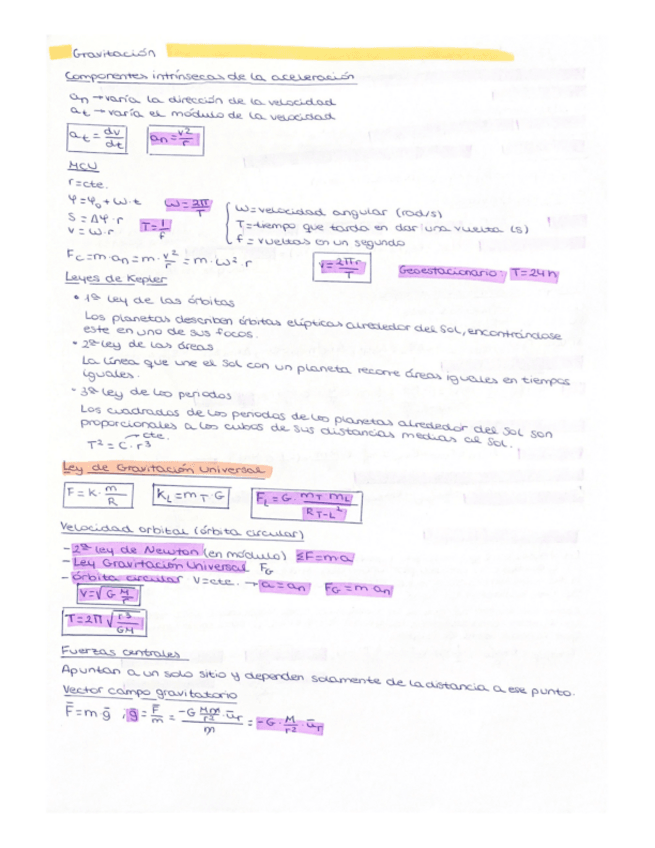 Gravitación
Componentes intrínsecas de la aceleración
an → varía la dirección de la velocidad
at → varía el módulo de la velocidad
at = dv/dt   an = v²/r
MCU
r = cte.
φ = φ₀ + ω·t   ω = 2π/T
S = Δφ·r   T = 1/f
v = ω·r
ω = velocidad angular (rad/s)
T = tiempo que tarda en dar una vuelta (s)
f = vueltas en un segundo
Fc = m·an = m·v²/r = m·ω²·r   v = 2πr/T   Geoestacionario: T = 24h
Leyes de Kepler
• 1ª ley de las órbitas
Los planetas describen órbitas elípticas alrededor del Sol, encontrándose
este en uno de sus focos.
• 2ª ley de las áreas
La línea que une el Sol con un planeta recorre áreas iguales en tiempos
iguales.
• 3ª ley de los periodos
Los cuadrados de los periodos de los planetas alrededor del Sol son
proporcionales a los cubos de sus distancias medias al Sol.
T² = C·r³ → cte.
Ley de Gravitación Universal
F = K·m/R   KL = mT·G   FL = G·mT mL/RT-L²
Velocidad orbital (órbita circular)
- 2ª ley de Newton (en módulo) ΣF = m·a
- Ley Gravitación Universal FG
- órbita circular v = cte. → a = an   FG = m an
v = √G M/r
T = 2π √r³/GM
Fuerzas centrales
Apuntan a un solo sitio y dependen solamente de la distancia a ese punto.
Vector campo gravitatorio
F̄ = m ḡ , ḡ = F̄/m = -G Mm/r² · ūr/m = -G · M/r² · ūr